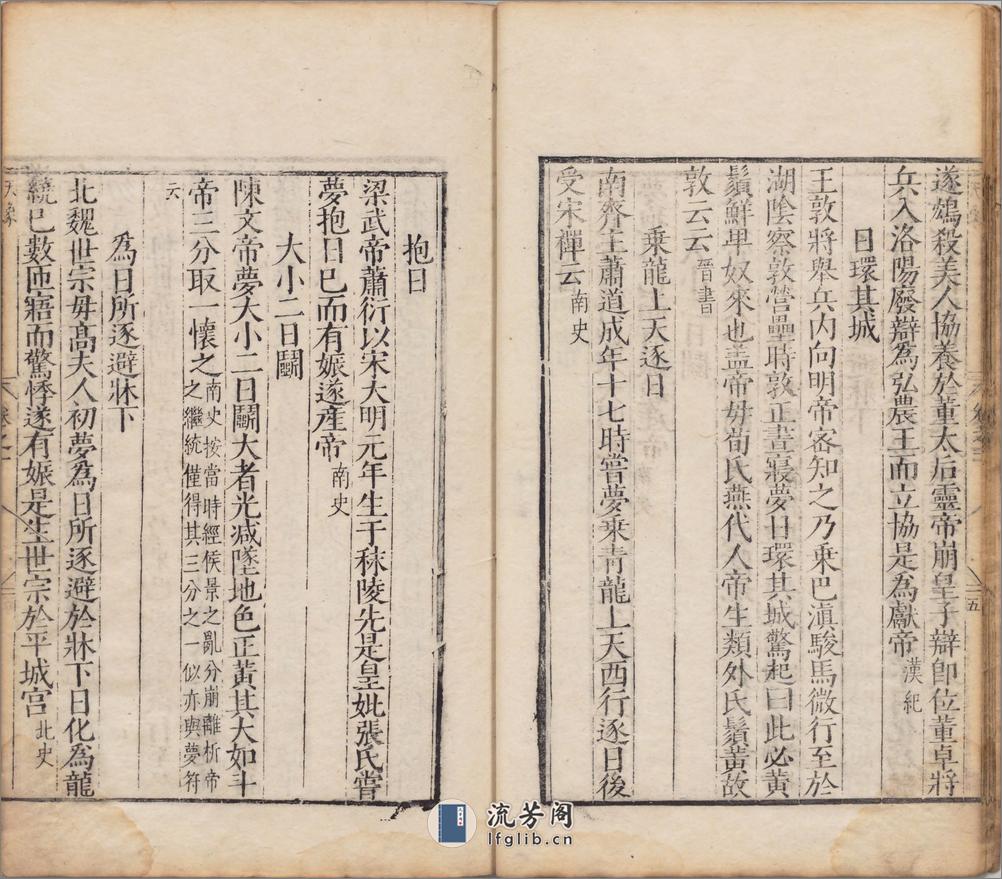 遂鴆殺美人協養於董太后靈帝崩皇子辯卽位董卓將
兵入洛陽廢辯為弘農王而立協是為獻帝漢紀
日環其城
王敦將舉兵内向明帝密知之乃乗巴滇駿馬微行至於
湖陰察敦營壘時敦正晝寢夢日環其城驚起曰此必黃
鬚鮮卑奴來也盖帝母荀氏燕代人帝生類外氏鬚黃故
敦云云晉書
乗龍上天逐日
南齊主蕭道成年十七時嘗夢乗青龍上天西行逐日後
受宋禪云南史
抱日
梁武帝蕭衍以宋大明元年生于秣陵先是皇妣張氏嘗
夢抱日巳而有娠遂産帝南史
大小二日鬭
陳文帝夢大小二日鬭大者光㓕墜地色正黃其大如斗
帝三分取一懷之南史按當時經侯景之亂分崩離析帝
之繼統僅得其三分之一似亦與夢符
云
為日所逐避牀下
北魏世宗母髙夫人初夢為日所逐避於牀下日化為龍
繞巳數匝寤而驚悸遂有娠是生世宗於平城宫北史
卷之一
五
流芳阁
lfglib.cn